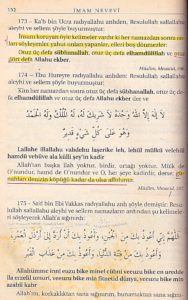 132 İMAM NEVEVÎ
173 – Ka'b bin Ucra radıyallahu anhden, Resulullah sallallahu
aleyhi ve sellem şöyle buyurmuştur:
İnsanı koruyan öyle kelimeler vardır ki her namazdan sonra on-
ları söyleyenler yahut onları yapanlar, elleri boş dönmezler.
Otuz üç defa sübhanallah, otuz üç defa elhamdülillah ve otuz
dört defa Allahu ekber.
Müslim, Mesacid,
174 – Ebu Hureyre radıyallahu anhden: Resulullah sallallahu
aleyhi ve sellem
her namazdan sonra otuz üç defa sübhanallah, otuz üç de-
fa elhamdülillah ve otuz üç defa Allahu ekber der,
لَا إِلٰهَ إِلَّا اللّٰهُ وَحْدَهُ لَا شَرِيكَ لَهُ، لَهُ الْمُلْكُ وَلَهُ الْحَمْدُ
وَهُوَ عَلَى كُلِّ شَيْءٍ قَدِيرٌ
Lailahe illallahu vahdehu laşerike leh, lehül mülkü velehül
hamdü vehüve ala külli şey'in kadir
Allah'tan başka ilah yoktur, birdir, ortağı yoktur. Mülk
O'nundur, hamd de O'nundur ve O, her şeye kadirdir, derse; gü-
nahları denizin köpüğü kadar da olsa affolunur.
Müslim, Mesacid,
175 – Sa'd bin Ebi Vakkas radıyallahu anh şöyle demiştir: Resu-
lullah sallallahu aleyhi ve sellem namazların ardından şu kelimele-
ri söyleyerek Allah'a sığınırdı:
Allahümme inni euzu bike minel cübni veeuzu bike en uredde
ila erzelil umuri, veeuzu bike min fitnetid dünya, veeuzu bike min
azabil kabr.
Allah'ım, korkaklıktan sana sığınırım, bunamaktan sana sığı-